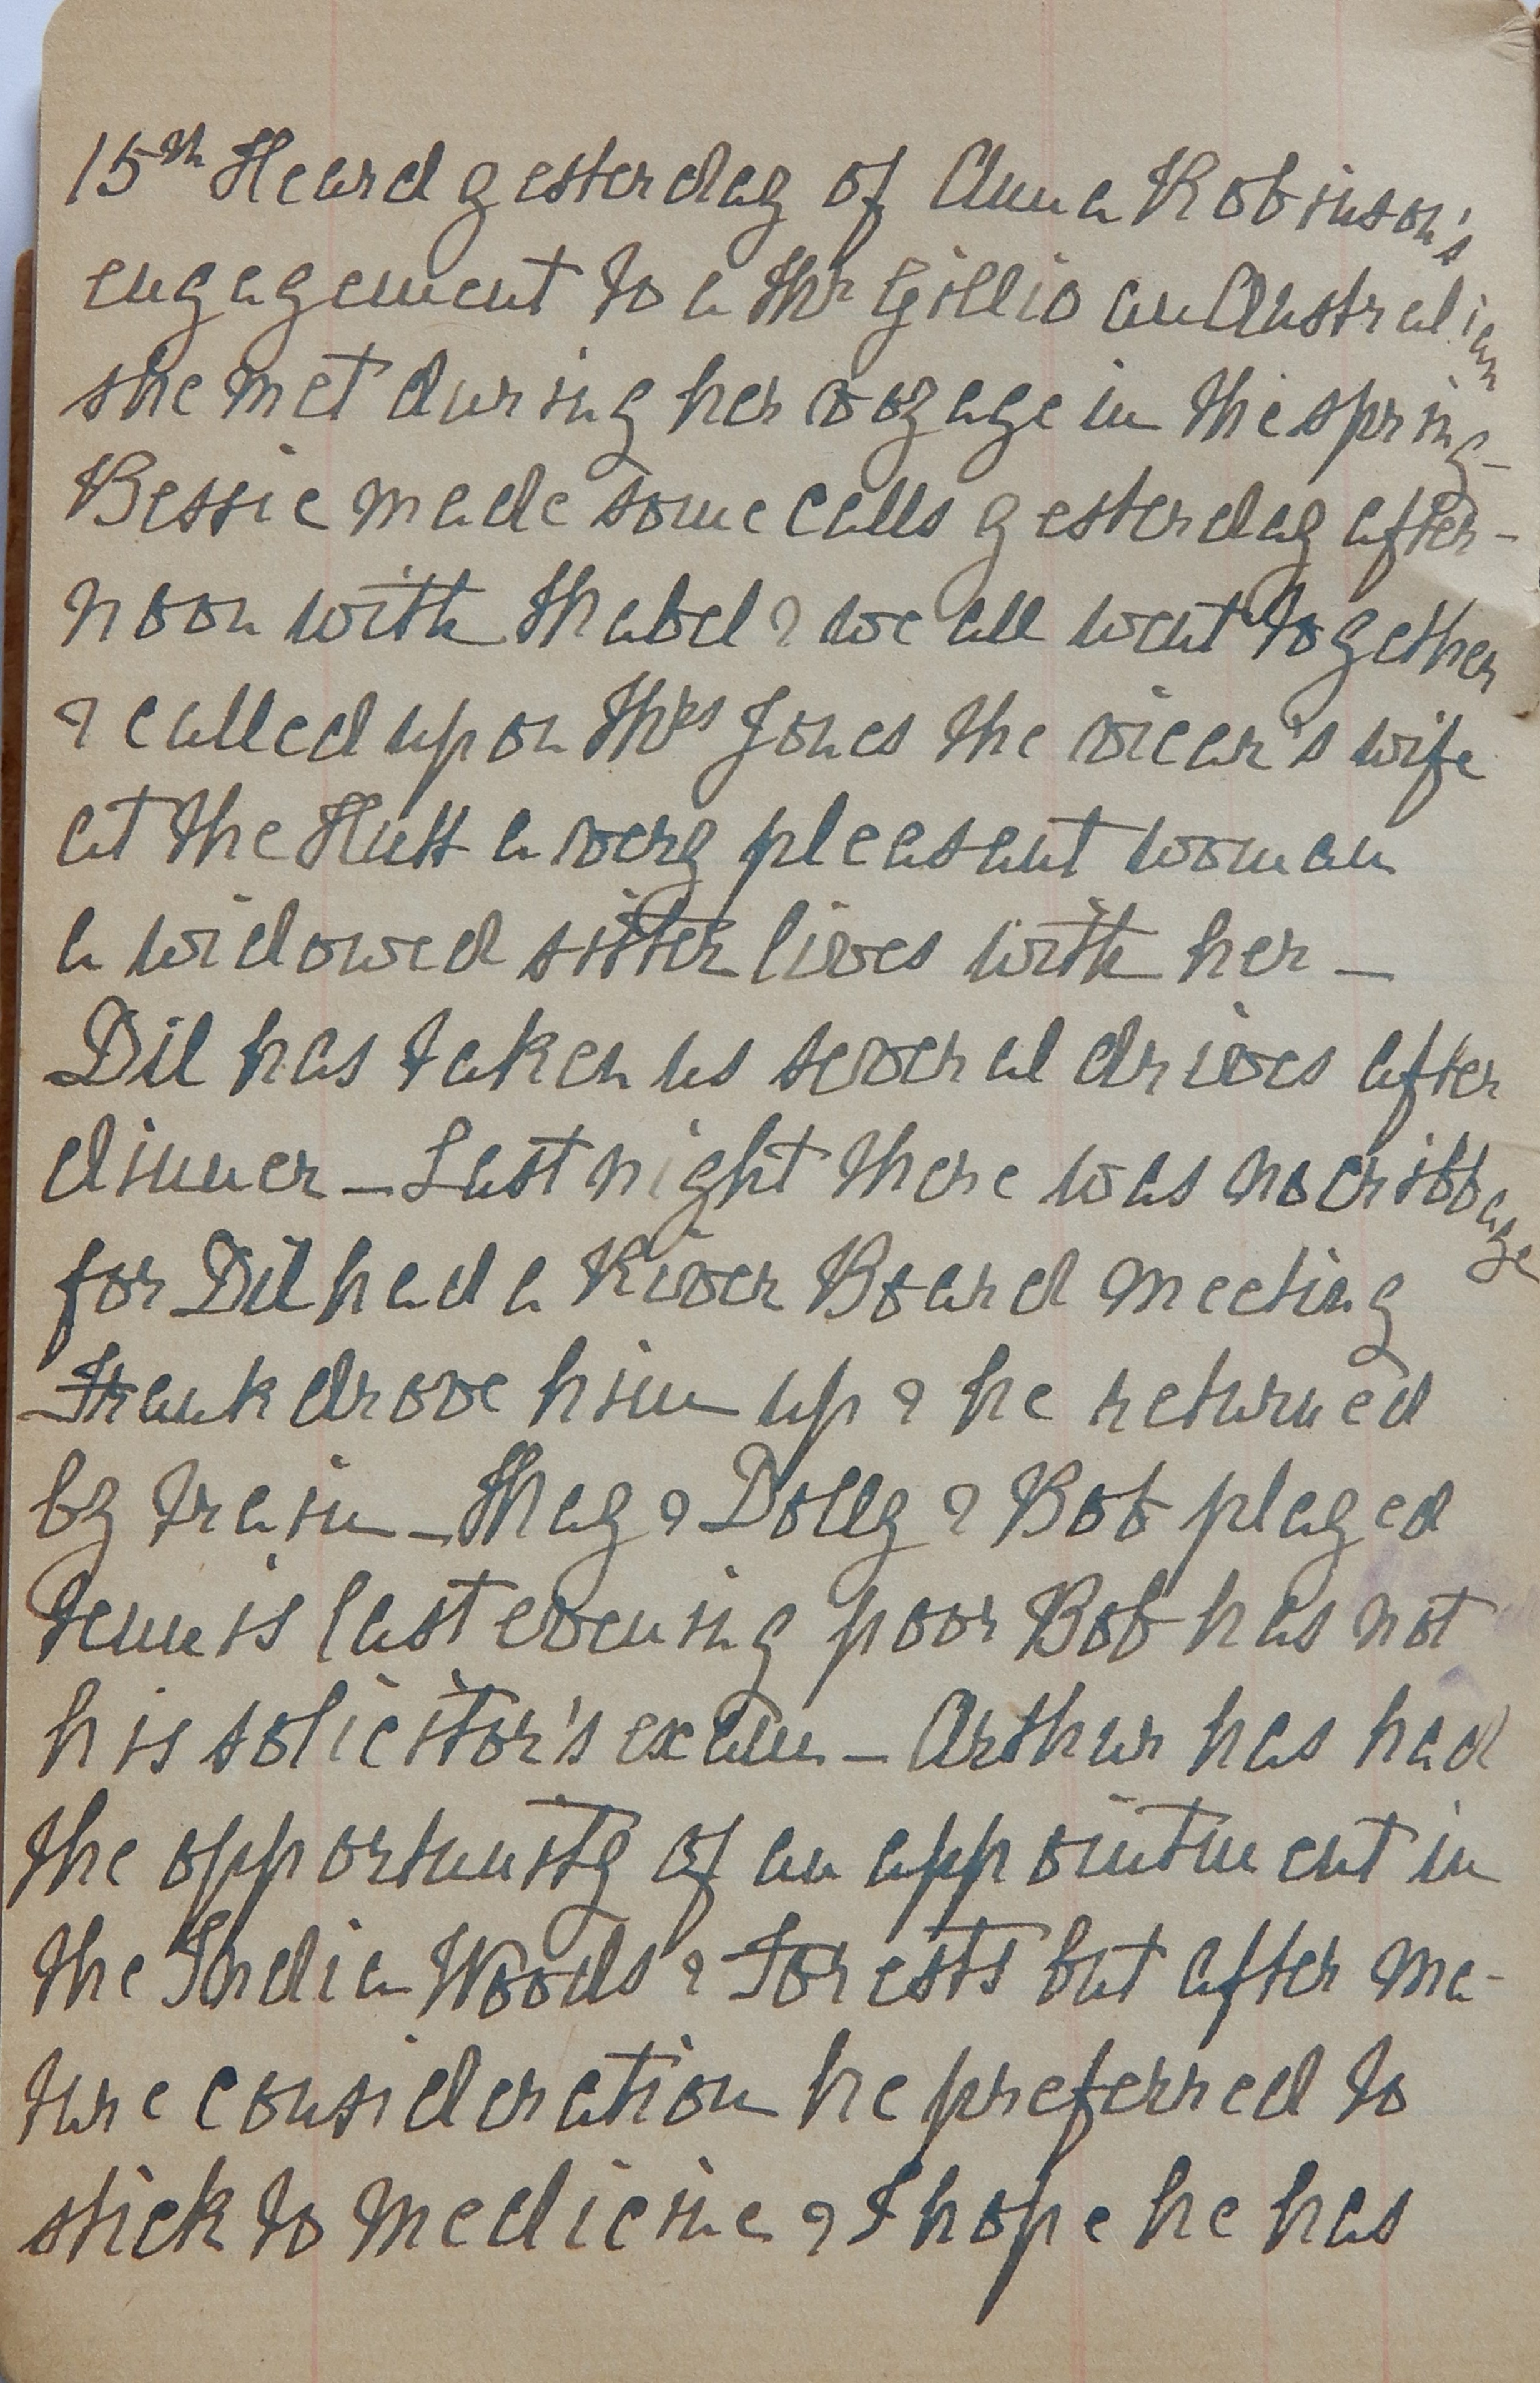 15th Heard yesterday of Anna Robinson's
engagement to a Mr Gillio an Australian
she met during her voyage in the spring -
Bessie made some calls yesterday after-
noon with Mabel & we all went together
& called upon Mrs Jones the vicar's wife
at the Hutt a very pleasant woman
a widowed sister lives with her -
Dil has taken us several drives after
dinner - Last night there was no cribbage
for Dil had a River Board meeting
Frank drove him up & he returned
by train - May & Dolly & Bob played
tennis last evening poor Bob has not
his solicitor's exam - Arthur has had
the opportunity of an appointment in
the India Woods & Forests but after ma-
ture consideration he preferred to
stick to medicine & I hope he has